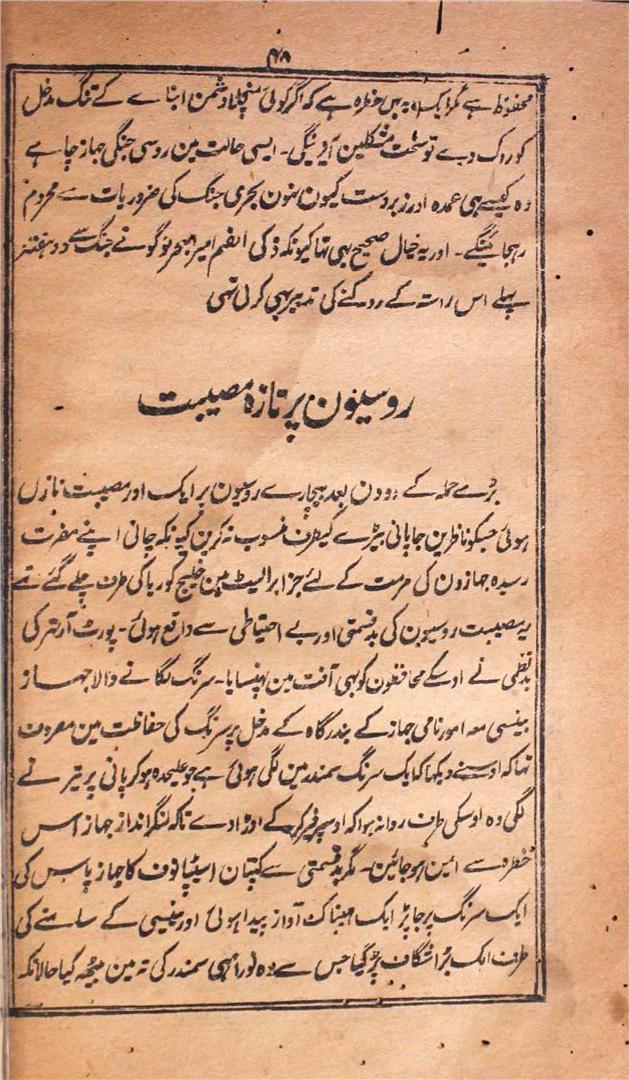 ۴۸
محفوظ ہے مگر ایک یہ بہی خطرہ ہے کہ اگر کوئی منچلا دشمن ابنائے کے تنگ مدخل
کو روک دے تو سخت مشکلین آوینگی۔ ایسی حالت مین روسی جنگی جہاز چاہے
وہ کیسے ہی عمدہ اور زبردست کیون نہون بحری جنگ کی ضروریات سے محروم
رہجائینگے۔ اور یہ خیال صحیح بہی تہا کیونکہ ذکی الفہم امیر البحر ٹوگو نے جنگ سے دو ہفتے
پہلے اس راستہ کے روکنے کی تدبیر بہی کر لی تہی
روسیون پر تازہ مصیبت
بڑے حملہ کے دو دن بعد بیچارے روسیون پر ایک اور مصیبت نازل
ہوئی جسکو ناظرین جاپانی بیڑے کیطرف منسوب نہ کرین کیونکہ جاپانی اپنے مضرت
رسیدہ جہازون کی مرمت کے لئے جزائر ایلیٹ مین خلیج کوریا کی طرف چلے گئے تہے
یہ مصیبت روسیون کی بدقسمتی اور بے احتیاطی سے واقع ہوئی۔ پورٹ آرتہر کی
بدنظمی نے اوسکے محافظون کو بہی آفت مین پہنسایا۔ سرنگ لگانے والا جہاز
ینسی معہ امور نامی جہاز کے بندرگاہ کے مدخل پر سرنگ کی حفاظت مین مصروف
تہا کہ اوسنے دیکہا کہ ایک سرنگ سمندر مین لگی ہوئی ہے جو علیحدہ ہو کر پانی پر تیرنے
لگی وہ اوسکی طرف روانہ ہوا کہ اوسپر فیر کرکے اوڑا دے تاکہ لنگر انداز جہاز اس
خطرہ سے امین ہو جائین۔ مگر بدقسمتی سے کپتان اسٹپانوف کا جہاز پاس کی
ایک سرنگ پر جا پڑا ایک مہیناک آواز پیدا ہوئی اور ینسی کے سامنے کی
طرف ایک بڑا شگاف پڑ گیا جس سے وہ فوراً ہی سمندر کی تہ مین بیٹہہ گیا حالانکہ